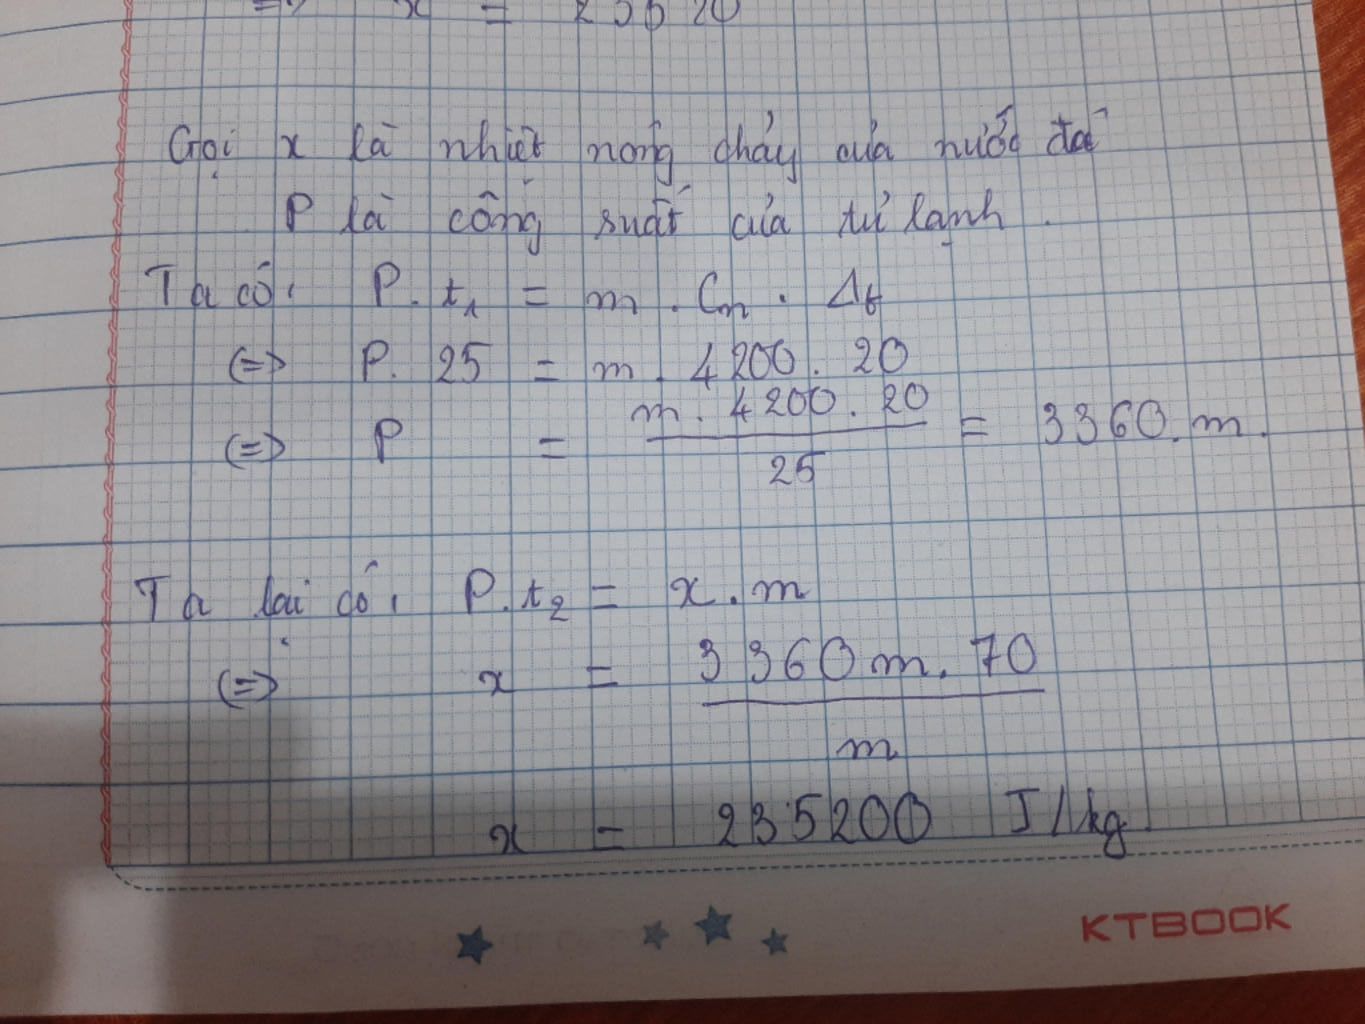 => x = 23520
Gọi x là nhiệt nóng chảy của nước đá
P là công suất của tủ lạnh .
Ta có: P. t₁ = m . Cn . Δt
<=> P. 25 = m . 4200. 20
<=> P = m. 4200. 20 / 25 = 3360. m.
Ta lại có: P. t₂ = x . m
<=> x = 3360 m. 70 / m
x = 235200 J/kg
KTBOOK